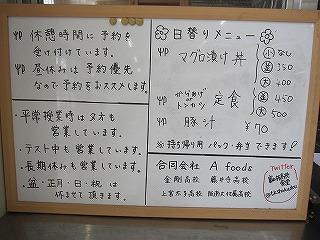 休憩時間に予約を
受け付けています。
昼休みは予約優先
なので予約をおススメします。
・平常授業時は夕方も
営業しています。
・テスト中も営業しています。
・長期休みも営業しています。
・盆・正月・日・祝は
休ませて頂きます。
日替りメニュー
マグロ漬け丼
小 なし
並 350
大 400
からあげ
or
トンカツ
定食
並 450
大 500
豚汁 ¥70
※持ち帰り用 パック・弁できます!
合同会社 A foods
金剛高校 藤井寺高校
上宮太子高校 阪南大付属高校
Twitter
食堂